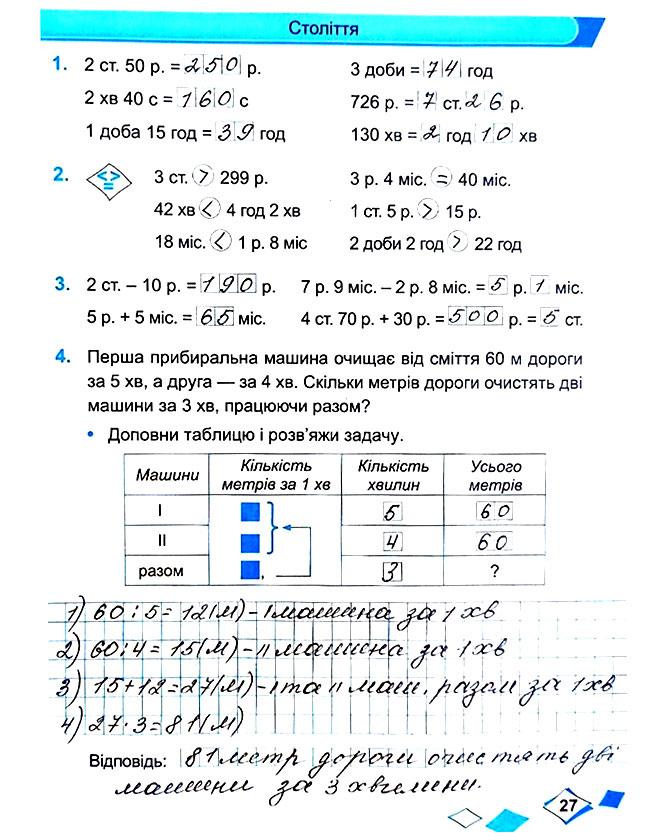 Століття
1. 2 ст. 50 р. = 250 р. 3 доби = 74 год
2 хв 40 с = 160 с 726 р. = 7 ст. 26 р.
1 доба 15 год = 39 год 130 хв = 2 год 10 хв
2. < > = 3 ст. > 299 р. 3 р. 4 міс. = 40 міс.
42 хв < 4 год 2 хв 1 ст. 5 р. > 15 р.
18 міс. < 1 р. 8 міс 2 доби 2 год > 22 год
3. 2 ст. – 10 р. = 190 р. 7 р. 9 міс. – 2 р. 8 міс. = 5 р. 1 міс.
5 р. + 5 міс. = 65 міс. 4 ст. 70 р. + 30 р. = 500 р. = 5 ст.
4. Перша прибиральна машина очищає від сміття 60 м дороги
за 5 хв, а друга — за 4 хв. Скільки метрів дороги очистять дві
машини за 3 хв, працюючи разом?
• Доповни таблицю і розв’яжи задачу.
Машини Кількість метрів за 1 хв Кількість хвилин Усього метрів
I 5 60
II 4 60
разом , 3 ?
1) 60 : 5 = 12 (м) - I машина за 1 хв
2) 60 : 4 = 15 (м) - II машина за 1 хв
3) 15 + 12 = 27 (м) - I та II маш. разом за 1 хв
4) 27 · 3 = 81 (м)
Відповідь: 81 метр дороги очистять дві
машини за 3 хвилини.
27